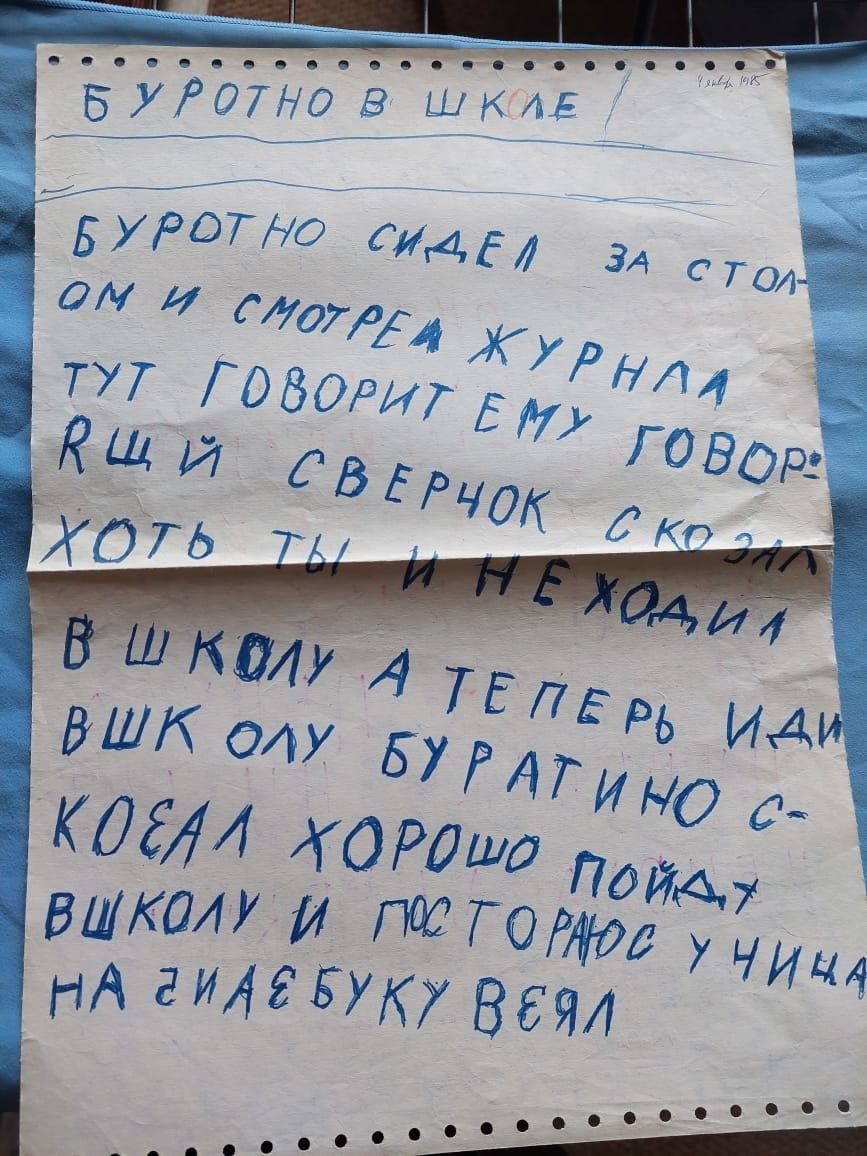 БУРОТНО В ШКОЛЕ
4 янвр 1985
БУРОТНО СИДЕЛ ЗА СТОЛ-
ОМ И СМОТРЕЛ ЖУРНЛА
ТУТ ГОВОРИТ ЕМУ ГОВОР:
ЯЩЙ СВЕРЧОК СКОЗАЛ
ХОТЬ ТЫ И НЕ ХОДИЛ
В ШКОЛУ А ТЕПЕРЬ ИДИ
ВШКОЛУ БУРАТИНО С-
КОЗАЛ ХОРОШО ПОЙДУ
ВШКОЛУ И ПОСТОРАЮС УЧИЦА
НА БУКУ ВЗЯЛ